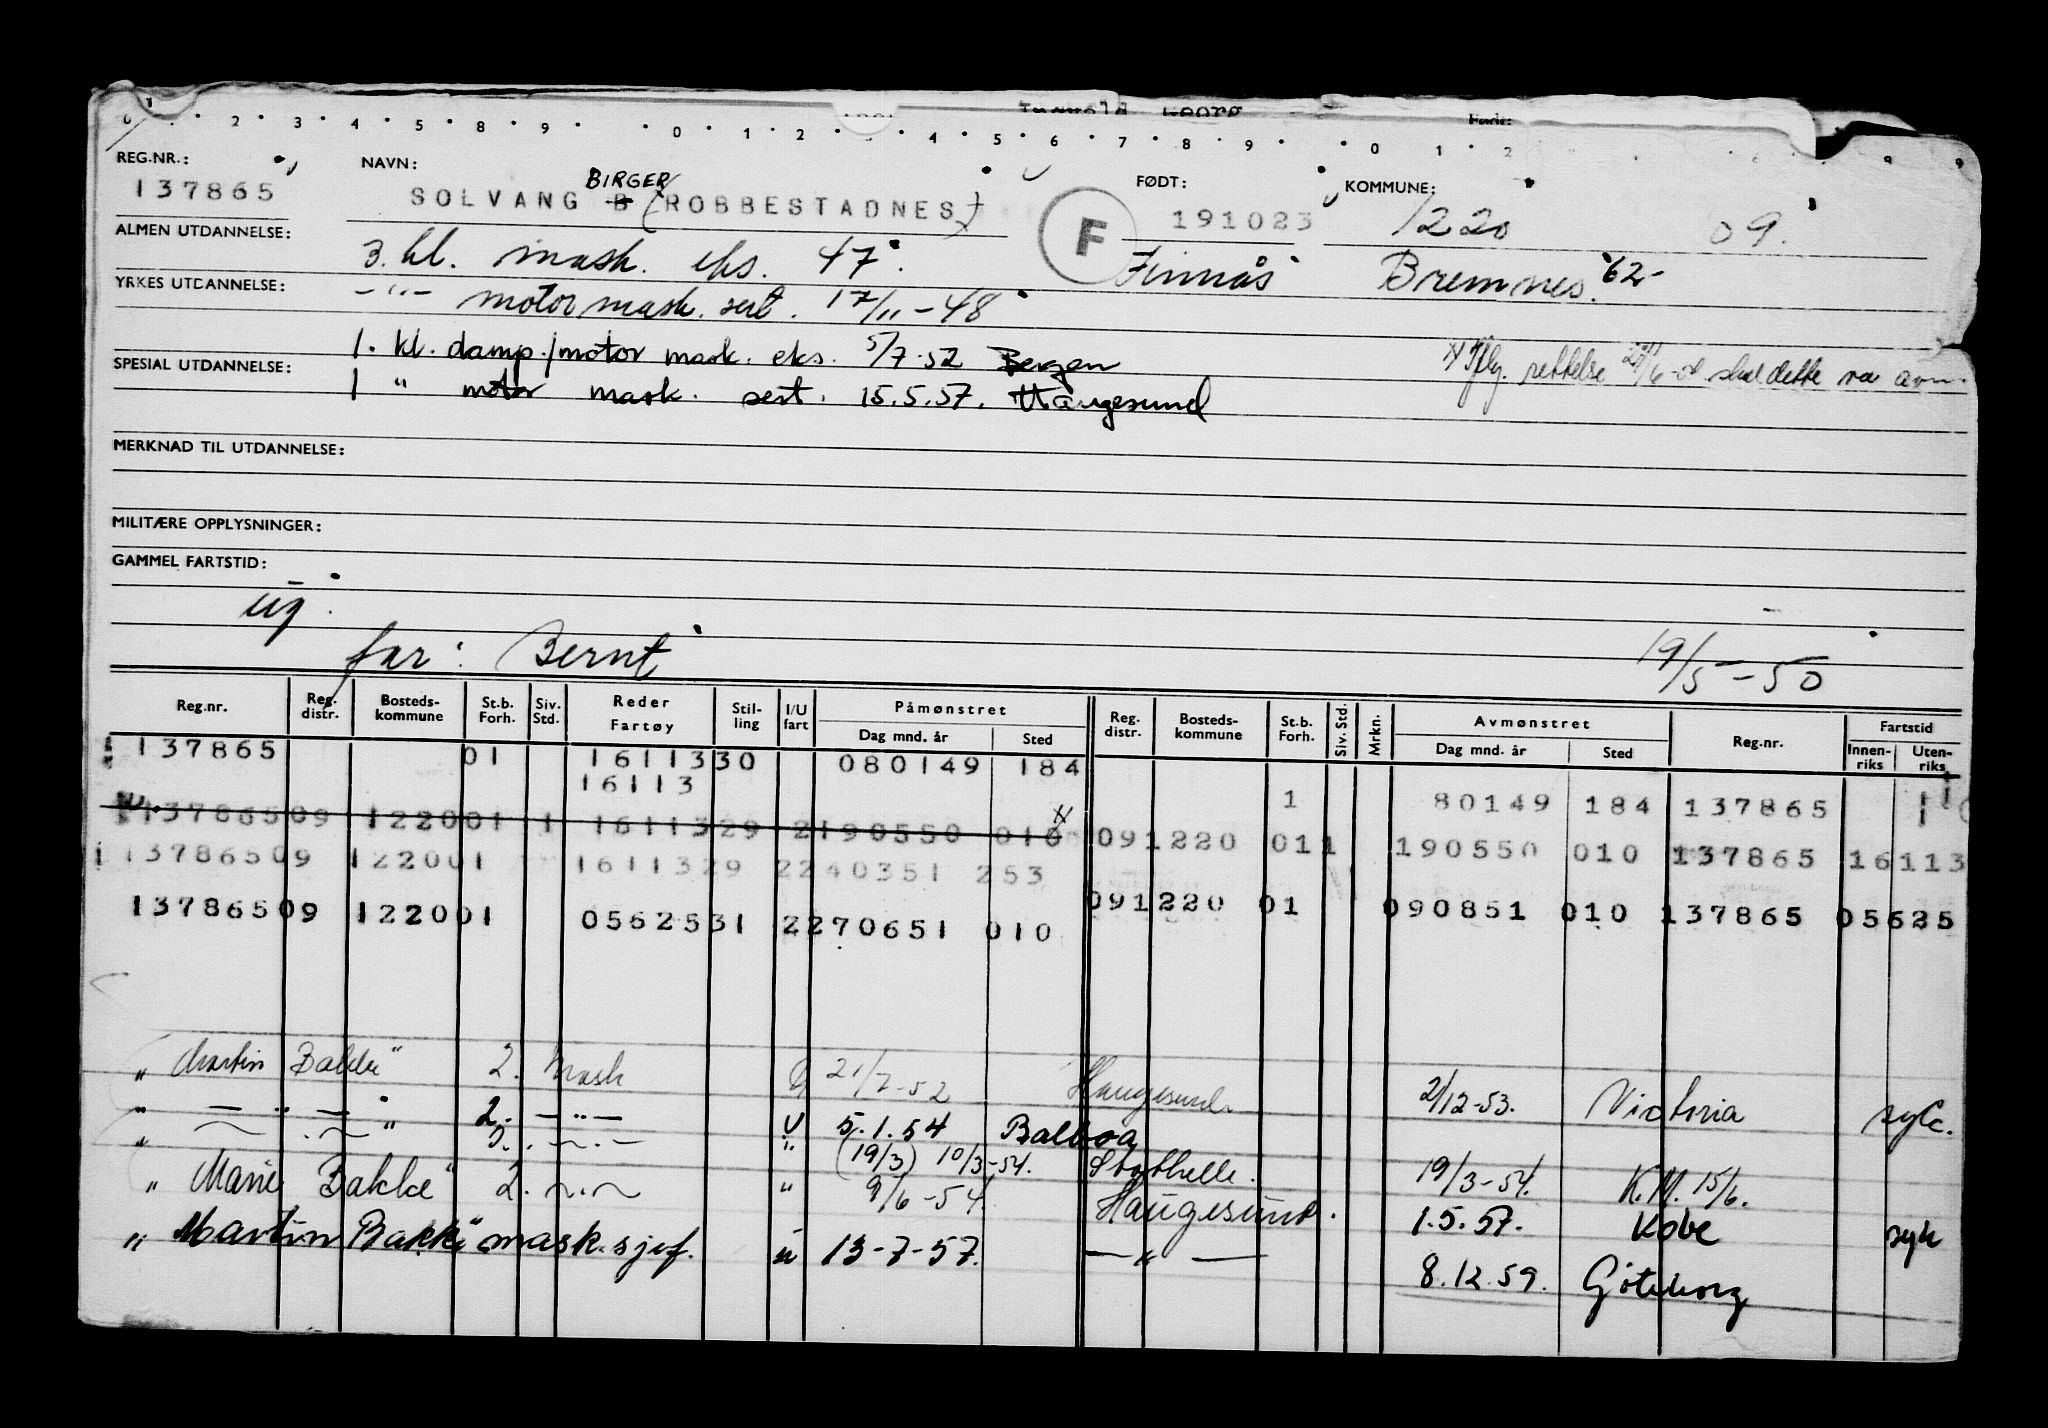 Georg
0 1 2 3 4 5 8 9 0 1 2 4 5 6 7 8 9 0 1 2 9 9
REG.NR.: NAVN: FØDT: KOMMUNE:
BIRGER
137865 SOLVANG B (ROBBESTADNES) F 191023 1220 09.
ALMEN UTDANNELSE: 3. kl. mask. eks. 47. Finnås Bremnes. '62-
YRKES UTDANNELSE: -"- motormask. sert. 17/11-48
SPESIAL UTDANNELSE: 1. kl. damp./motor mask. eks. 5/7.52 Bergen
1 " motor mask. sert. 15.5.57. Haugesund
rettelse skal dette
MERKNAD TIL UTDANNELSE:
MILITÆRE OPPLYSNINGER:
GAMMEL FARTSTID:
far: Bernt 19/5-50
Reg.nr. Reg. distr. Bosteds-kommune St.b. Forh. Siv. Std. Reder Fartøy Stil-ling I/U fart Påmønstret Dag mnd. år Sted Reg. distr. Bosteds-kommune St.b. Forh. Siv. Std. Mrkn. Avmønstret Dag mnd. år Sted Reg.nr. Fartstid Innen-riks Uten-riks
137865 01 1611330 080149 184
16113 1 80149 184 137865 1
13786509 122001 1 1611329 2190550 010 x 091220 011 190550 010 137865 16113
13786509 122001 1611329 2240351 253
13786509 122001 0562531 2270651 010 091220 01 090851 010 137865 05625
" Martin Bakke" 2. mask U 21/7-52 Haugesund. 21/12-53. Victoria syk.
" — " — " 2. — " — U 5.1.54 Balboa
" — . — " — . — " (19/3) 10/3-54. Stathelle. 19/3-54. K.M. 15/6.
" Marie Bakke" 2. — . — " 9/6-54. Haugesund. 1.5.57. Kobe syk
" Martin Bakke" mask.sjef. u 13-7-57. — " — 8.12.59. Göteborg